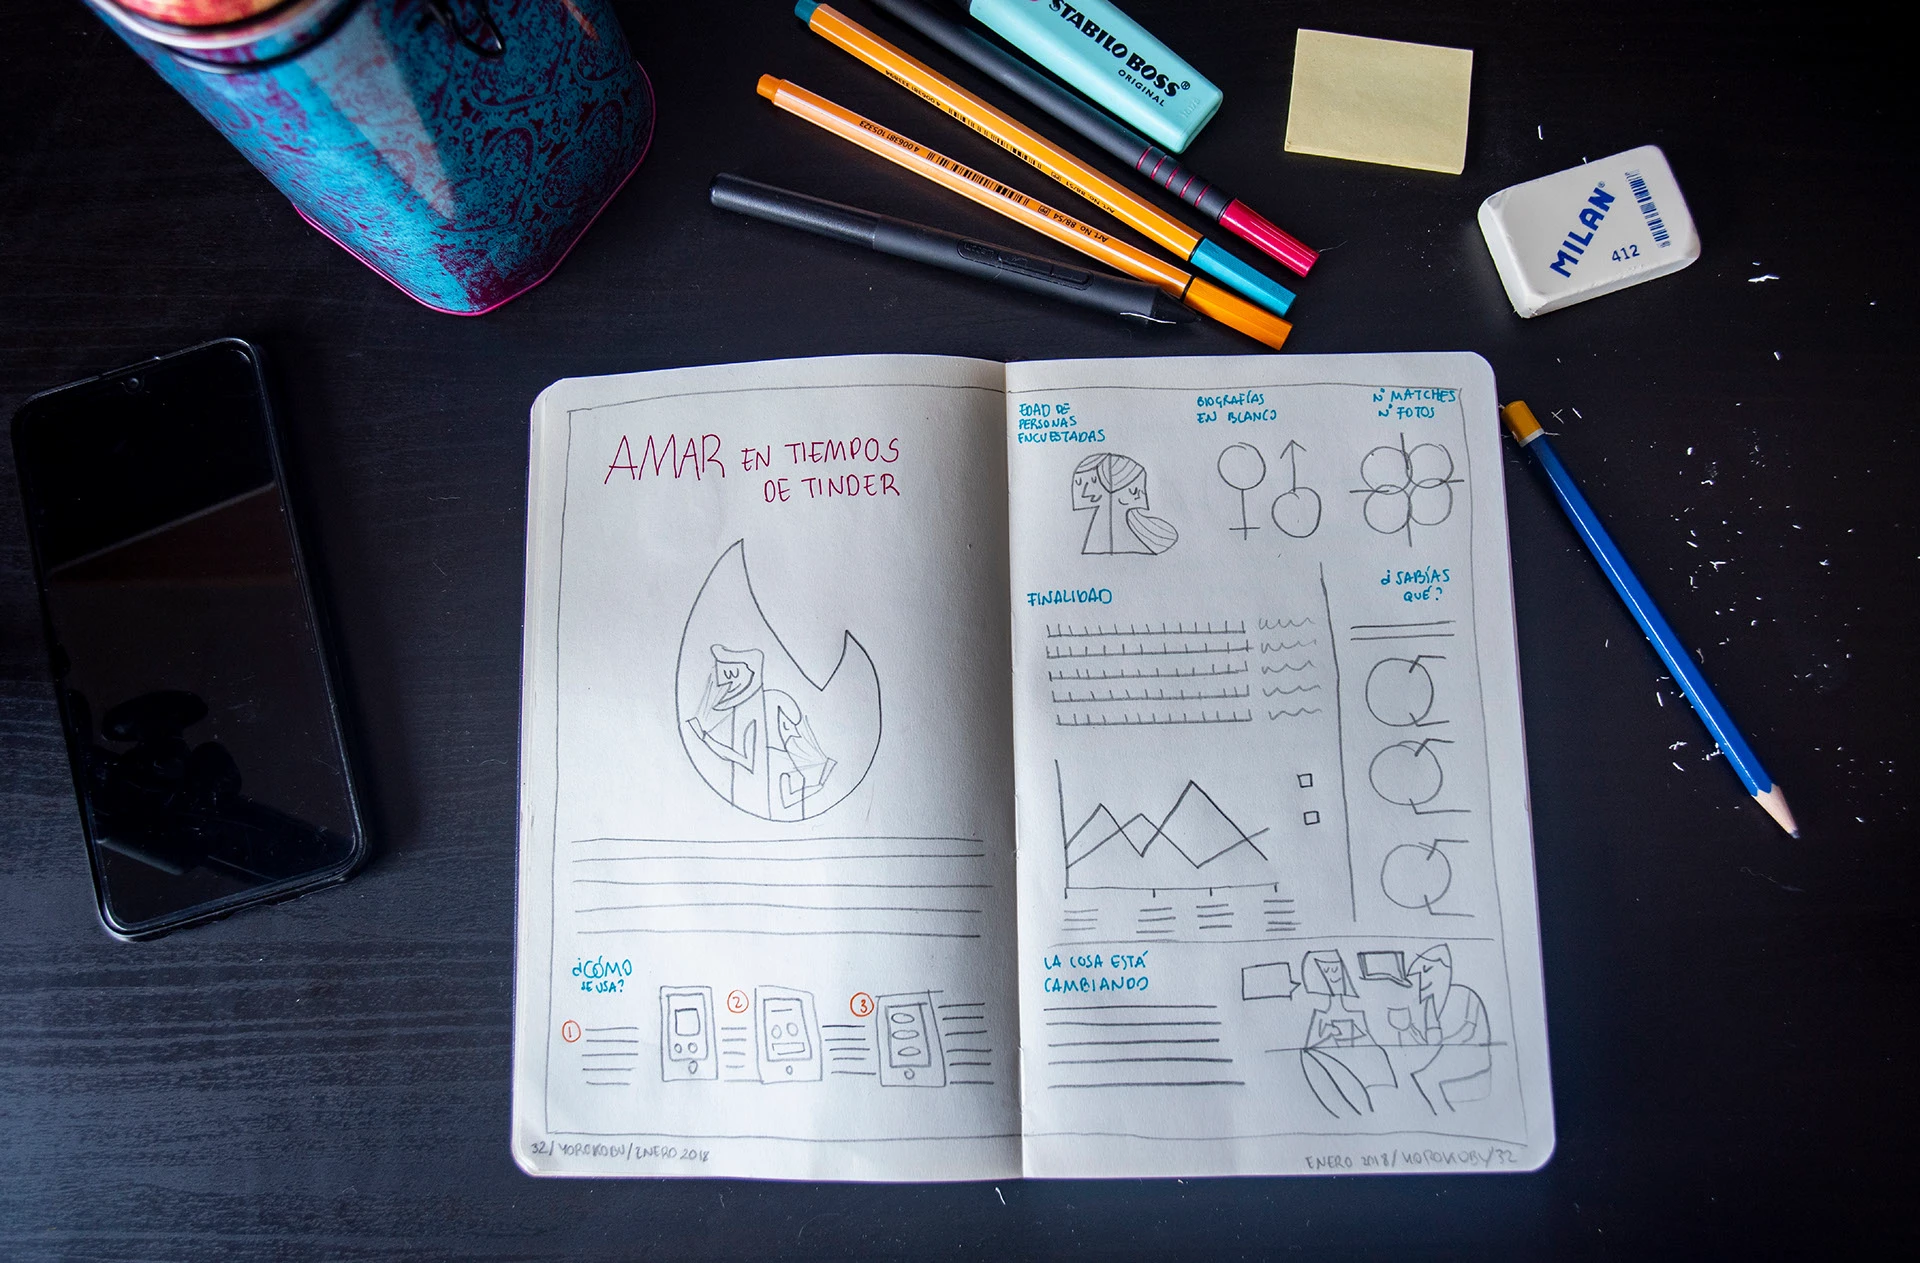 STABILO BOSS®
ORIGINAL
4 006381 105323
Art. No. 88/54
MILAN®
412
AMAR EN TIEMPOS
DE TINDER
¿CÓMO
SE USA?
1
2
3
32/YOROKOBU/ENERO 2018
EDAD DE
PERSONAS
ENCUESTADAS
BIOGRAFÍAS
EN BLANCO
Nº MATCHES
Nº FOTOS
FINALIDAD
¿SABÍAS
QUÉ?
LA COSA ESTÁ
CAMBIANDO
ENERO 2018/YOROKOBU/32